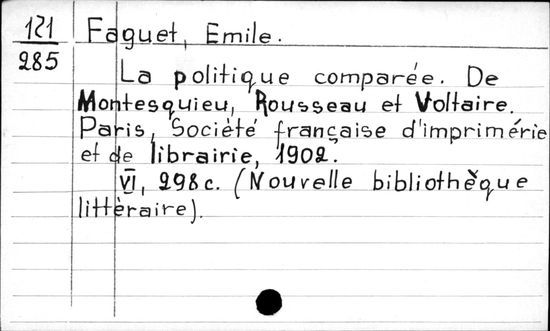 121
285
Faguet, Emile.
La politique comparée. De
Montesquieu, Rousseau et Voltaire.
Paris, Société française d'imprimérie
et de librairie, 1902.
VI, 298 c. (Nouvelle bibliothèque
littèraire).